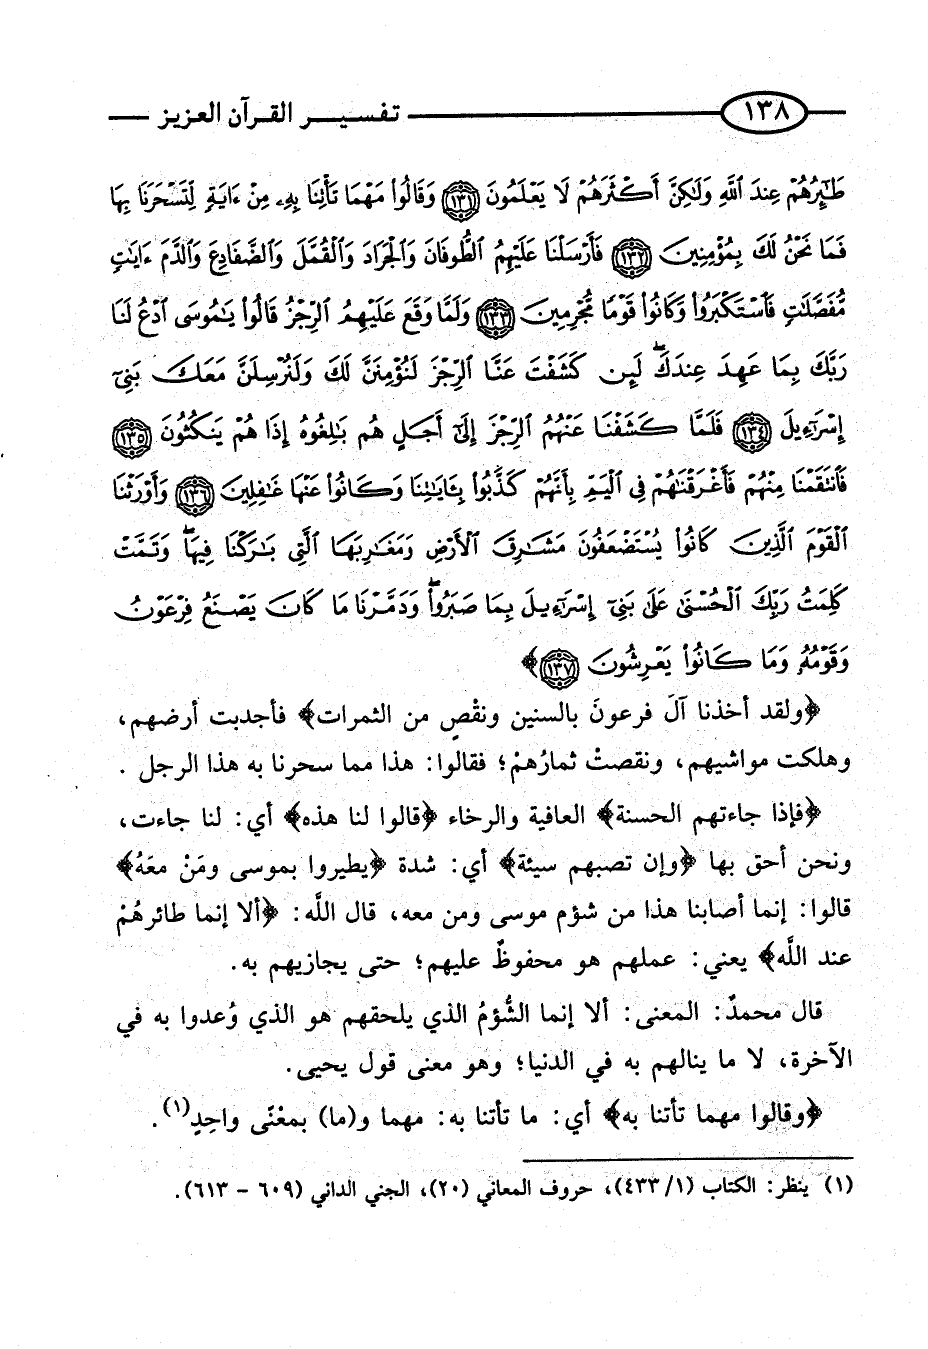 ١٣٨ تفسير القرآن العزيز
طَٰٓئِرُهُمْ عِندَ ٱللَّهِ وَلَٰكِنَّ أَكْثَرَهُمْ لَا يَعْلَمُونَ ﴿١٣١﴾ وَقَالُوا۟ مَهْمَا تَأْتِنَا بِهِۦ مِنْ ءَايَةٍ لِّتَسْحَرَنَا بِهَا
فَمَا نَحْنُ لَكَ بِمُؤْمِنِينَ ﴿١٣٢﴾ فَأَرْسَلْنَا عَلَيْهِمُ ٱلطُّوفَانَ وَٱلْجَرَادَ وَٱلْقُمَّلَ وَٱلضَّفَادِعَ وَٱلدَّمَ ءَايَٰتٍ
مُّفَصَّلَٰتٍ فَٱسْتَكْبَرُوا۟ وَكَانُوا۟ قَوْمًا مُّجْرِمِينَ ﴿١٣٣﴾ وَلَمَّا وَقَعَ عَلَيْهِمُ ٱلرِّجْزُ قَالُوا۟ يَٰمُوسَى ٱدْعُ لَنَا
رَبَّكَ بِمَا عَهِدَ عِندَكَ ۖ لَئِن كَشَفْتَ عَنَّا ٱلرِّجْزَ لَنُؤْمِنَنَّ لَكَ وَلَنُرْسِلَنَّ مَعَكَ بَنِىٓ
إِسْرَٰٓءِيلَ ﴿١٣٤﴾ فَلَمَّا كَشَفْنَا عَنْهُمُ ٱلرِّجْزَ إِلَىٰٓ أَجَلٍ هُم بَٰلِغُوهُ إِذَا هُمْ يَنكُثُونَ ﴿١٣٥﴾
فَٱنتَقَمْنَا مِنْهُمْ فَأَغْرَقْنَٰهُمْ فِى ٱلْيَمِّ بِأَنَّهُمْ كَذَّبُوا۟ بِـَٔايَٰتِنَا وَكَانُوا۟ عَنْهَا غَٰفِلِينَ ﴿١٣٦﴾ وَأَوْرَثْنَا
ٱلْقَوْمَ ٱلَّذِينَ كَانُوا۟ يُسْتَضْعَفُونَ مَشَٰرِقَ ٱلْأَرْضِ وَمَغَٰرِبَهَا ٱلَّتِى بَٰرَكْنَا فِيهَا ۖ وَتَمَّتْ
كَلِمَتُ رَبِّكَ ٱلْحُسْنَىٰ عَلَىٰ بَنِىٓ إِسْرَٰٓءِيلَ بِمَا صَبَرُوا۟ ۖ وَدَمَّرْنَا مَا كَانَ يَصْنَعُ فِرْعَوْنُ
وَقَوْمُهُۥ وَمَا كَانُوا۟ يَعْرِشُونَ ﴿١٣٧﴾﴾
﴿ولقد أخذنا آلَ فرعونَ بالسنين ونقْصٍ من الثمرات﴾ فأجدبت أرضهم،
وهلكت مواشيهم، ونقصتْ ثمارُهمْ؛ فقالوا: هذا مما سحرنا به هذا الرجل .
﴿فإذا جاءتهم الحسنة﴾ العافية والرخاء ﴿قالوا لنا هذه﴾ أي: لنا جاءت،
ونحن أحق بها ﴿وإن تصبهم سيئة﴾ أي: شدة ﴿يطيروا بموسى ومَنْ معَهُ﴾
قالوا: إنما أصابنا هذا من شؤم موسى ومن معه، قال اللَّه: ﴿ألا إنما طائرهُمْ
عند اللَّه﴾ يعني: عملهم هو محفوظٌ عليهم؛ حتى يجازيهم به.
قال محمدٌ: المعنى: ألا إنما الشُّؤمُ الذي يلحقهم هو الذي وُعدوا به في
الآخرة، لا ما ينالهم به في الدنيا؛ وهو معنى قول يحيى.
﴿وقالوا مهما تأتنا به﴾ أي: ما تأتنا به: مهما و(ما) بمعْنًى واحِدٍ(١).
(١) ينظر: الكتاب (١/ ٤٣٣)، حروف المعاني (٢٠)، الجني الداني (٦٠٩ - ٦١٣).